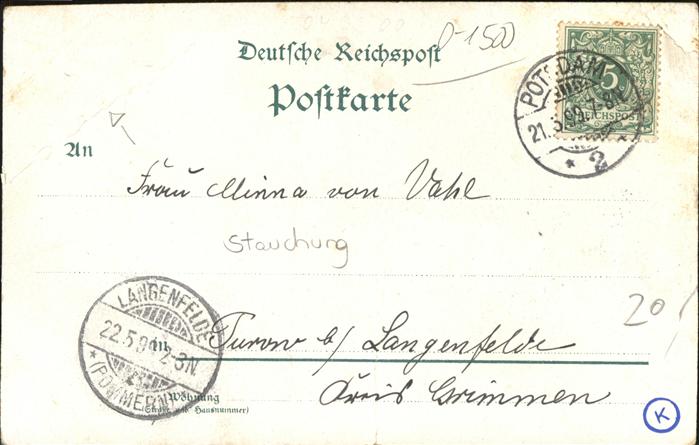 D-1500
Deutsche Reichspost
Postkarte
POTSDAM
21.5.99. 7-8N
* 2
5
REICHSPOST
An
Frau Minna von Vahl
Stauchung
LANGENFELDE
22.5.9 2-3N
* (POMMERN)
in
Turow b/ Langenfelde
Kreis Grimmen
Wohnung
(Straße und Hausnummer)
20
K